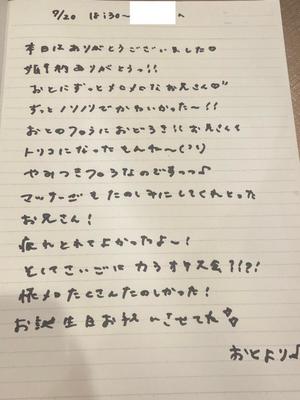 9/20 18:30〜 へ
本日はありがとうございました♡
ありがとうっ!!
おとにずっとメロメロなお兄さん♡
ずっとノリノリでかわいかった〜!!
おとのフロうにおどろき!! お兄さんも
トリコになったもんね〜
やみつきフロうなのですっっ♪
マッサーヅもたのしみにしてくれとった
お兄さん!
疲れとれてよかったよ〜!
そしてさいごに カラオケ大会??!
たくさんたのしかった!
お誕生日お祝いさせてた
おとより♪